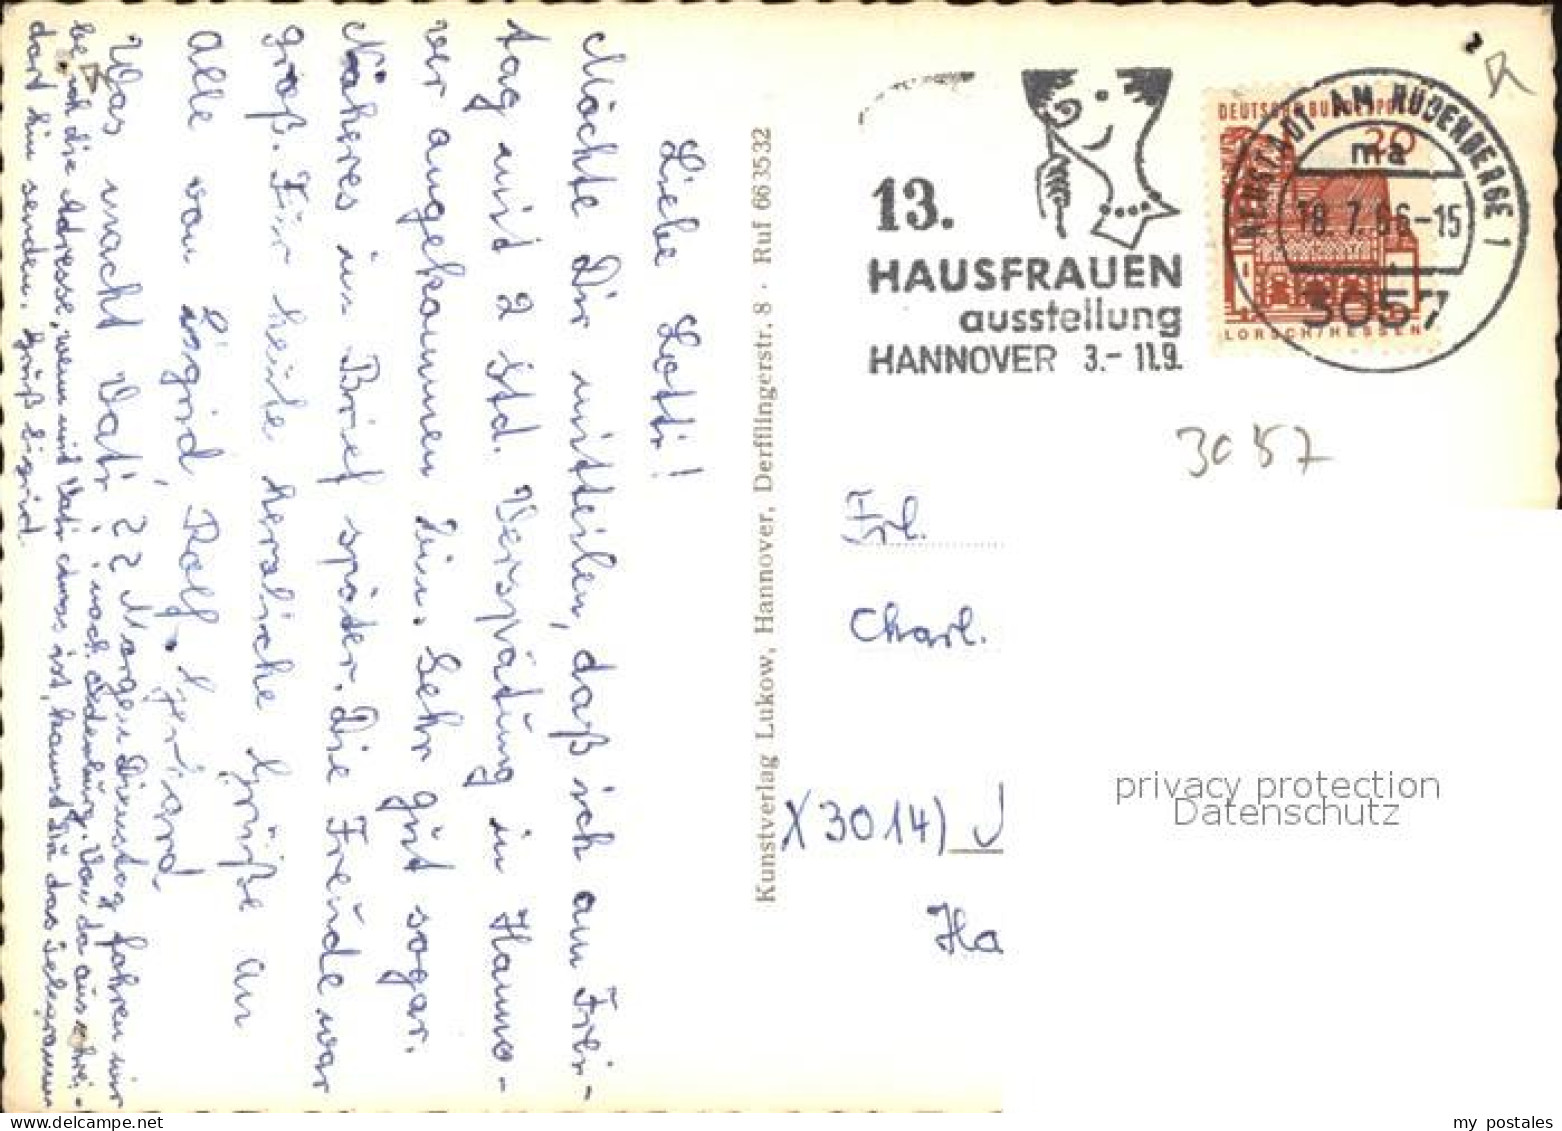 Liebe Lotti!
Möchte Dir mitteilen, daß ich am Frei-
tag mit 2 Std. Verspätung in Hanno-
ver angekommen bin. Sehr gut sogar.
Näheres im Brief später. Die Freude war
groß. Für heute herzliche Grüße an
alle von Sigrid, Rolf,
Was macht Vati?? Morgen Dienstag fahren wir
noch Von da aus schrei-
be ich die Adresse, wenn mit Vati etwas ist, kannst du das Telegramm
dort hin senden. Gruß Sigrid.
Kunstverlag Lukow, Hannover, Derfflingerstr. 8 · Ruf 663532
13.
HAUSFRAUEN
ausstellung
HANNOVER 3.-11.9.
DEUTSCHE BUNDESPOST
20
LORSCH/HESSEN
NEUSTADT AM RÜBENBERGE 1
ma
18.7.66-15
3057
3057
Frl.
Charl.
X3014)
Ha
privacy protection
Datenschutz
www.delcampe.net
my_postales